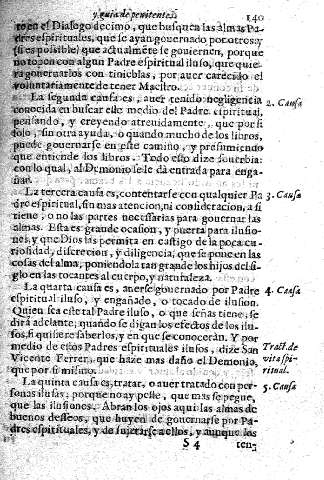 y guia de penitentes. 140
to en el Dialogo decimo, que busquen las almas Pa-
dres espirituales, que se ayan gouernado por otros: y
si es posible, que actualmēte se gouiernen, porque
no topen con algun Padre espiritual iluso, que quie-
ra gouernarlos con tinieblas, por auer carecido el
voluntariamente de tener Maestro.
La segunda causa es, auer tenido negligencia 2. Causa
conocida en buscar este medio del Padre espiritual,
pensando, y creyendo atreuidamente, que por si
solo, sin otra ayuda, o quando mucho de los libros,
puede gouernarse en este camino, y presumiendo
que entiende los libros. Todo esto dize soberbia:
con lo qual, al Demonio se le da entrada para enga-
ñar.
La tercera causa es, contentarse con qualquier Pa 3. Causa
dre espiritual, sin mas atencion, ni consideracion, a si
tiene, o no las partes necessarias para gouernar las
almas. Esta es grande ocasion, y puerta para ilusio-
nes, y que Dios las permita en castigo de la poca cu-
riosidad, discrecion, y diligencia, que se pone en las
cosas del alma, poniendola tan grande los hijos del si-
glo en las tocantes al cuerpo, y naturaleza.
La quarta causa es, auerse gouernado por Padre 4. Causa
espiritual iluso, y engañado, o tocado de ilusion.
Quien sea este tal Padre iluso, o que señas tiene, se
dirá adelante, quando se digan los efectos de los ilu-
sos, si quisiere saberlos, y en que se conocerán. Y por
medio de estos Padres espirituales ilusos, dize San Tract. de
Vicente Ferrer, que haze mas daño el Demonio, vita spi-
que por si mismo. ritual.
La quinta causa es, tratar, o auer tratado con per- 5. Causa
sonas ilusas: porque no ay peste, que mas se pegue,
que las ilusiones. Abran los ojos aqui las almas de
buenos desseos, que huyen de gouernarse por Pa-
dres espirituales, y de sujetarse a ellos, y aunque los
S 4 ten-